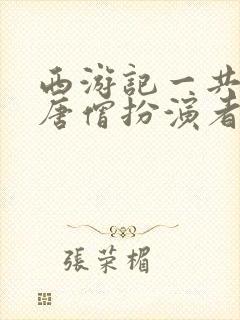 西游記一共
唐僧扮演者
張荣楣